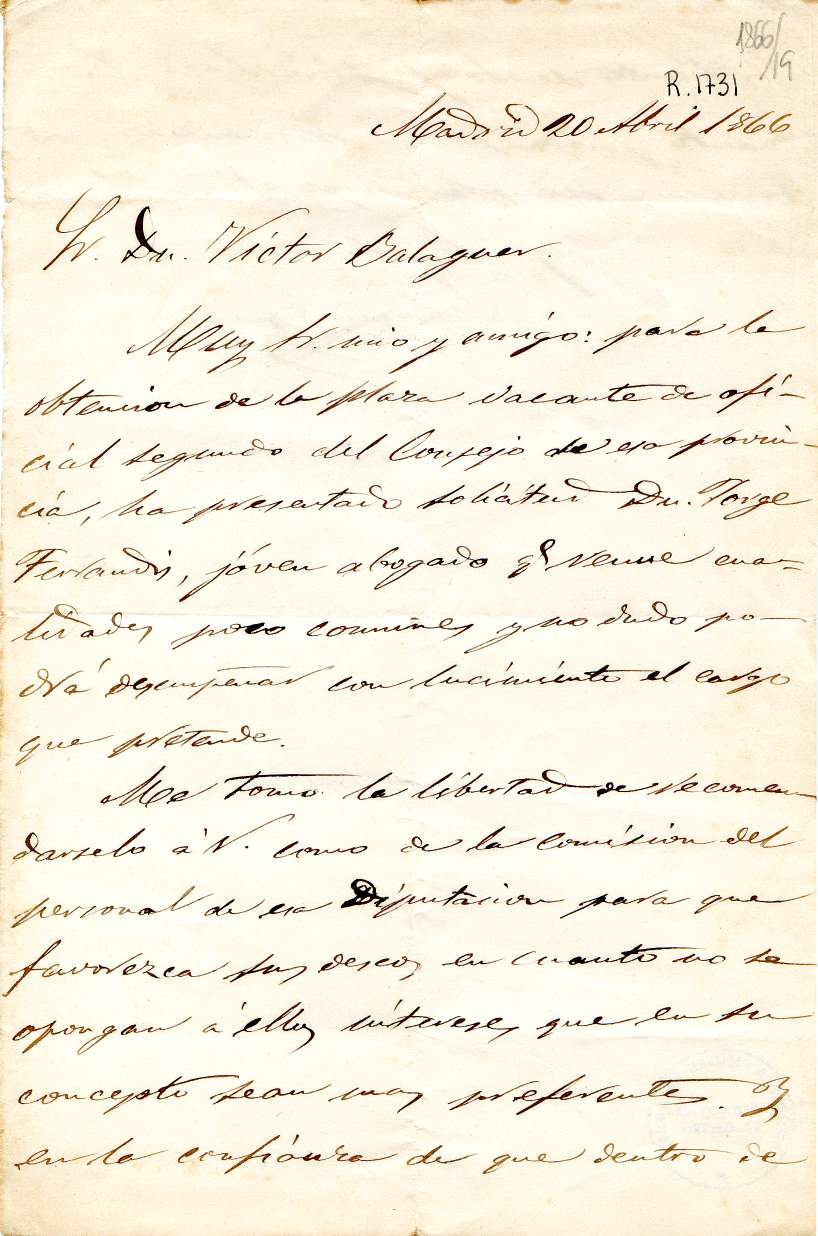 1866/19
R. 1731
Madrid 20 Abril 1866
Sr. Dn. Víctor Balaguer.
Muy Sr. mio y amigo: para la
obtencion de la plaza vacante de ofi-
cial segundo del Consejo de esa provin-
cia, ha presentado solicitud Dn. Jorge
Ferrandis, jóven abogado q̃ reune cua-
lidades poco comunes y no dudo po-
drá desempeñar con lucimiento el cargo
que pretende.
Me tomo la libertad de recomen
darselo á V. como de la comision del
personal de esa Diputacion para que
favorezca sus deseos, en cuanto no se
opongan á ellos intereses que en su
concepto sean mas preferentes. Y
en la confianza de que dentro de